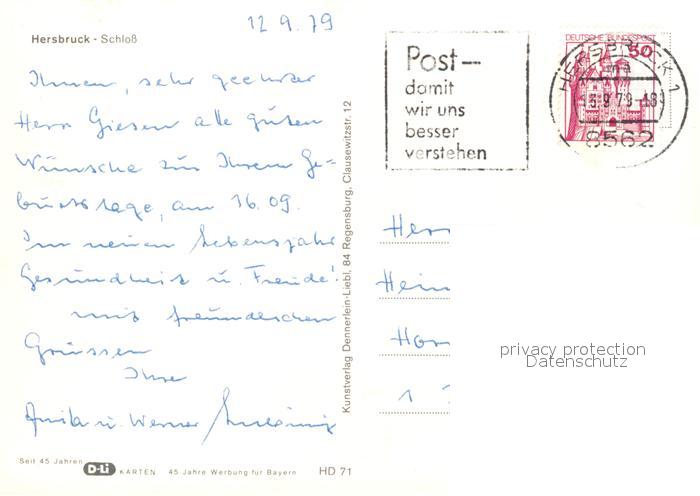 12 9. 79
Hersbruck - Schloß
Ihnen, sehr geehrter
Herr Giesen alle guten
Wünsche zu Ihrem Ge=
burtstage, am 16.09.
Im neuen Lebensjahr
Gesundheit u. Freude!
mit freundlichen
Grüssen
Ihre
Anita u. Werner
Seit 45 Jahren
D-Li KARTEN 45 Jahre Werbung für Bayern HD 71
Kunstverlag Dennerlein-Liebl, 84 Regensburg, Clausewitzstr. 12
Post—
damit
wir uns
besser
verstehen
DEUTSCHE BUNDESPOST
50
HERSBRUCK 1
8562
Herr
Hein
1
privacy protection
Datenschutz